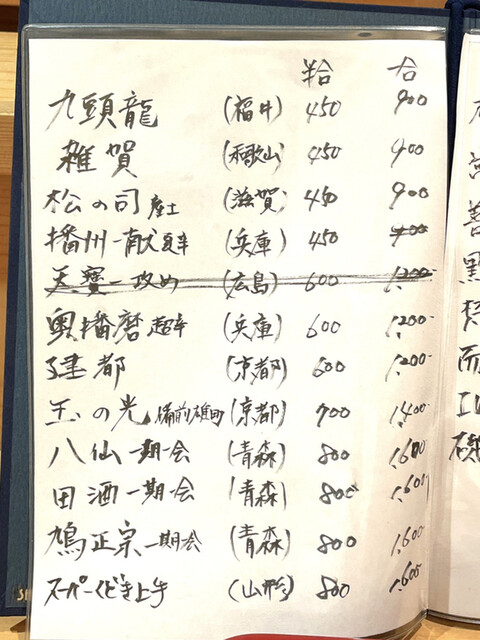 半合 合
九頭龍 (福井) 450 900
雑賀 (和歌山) 450 900
松の司 産土 (滋賀) 450 900
播州一献 超辛 (兵庫) 450 900
天寶一 攻め (広島) 600 1,200-
奥播磨 超辛 (兵庫) 600 1,200-
建都 (京都) 600 1,200-
玉の光 備前雄町 (京都) 700 1,400-
八仙 一期一会 (青森) 800 1,600
田酒 一期一会 (青森) 800 1,600
鳩正宗 一期一会 (青森) 800 1,600-
スーパーくどき上手 (山形) 800 1,600-